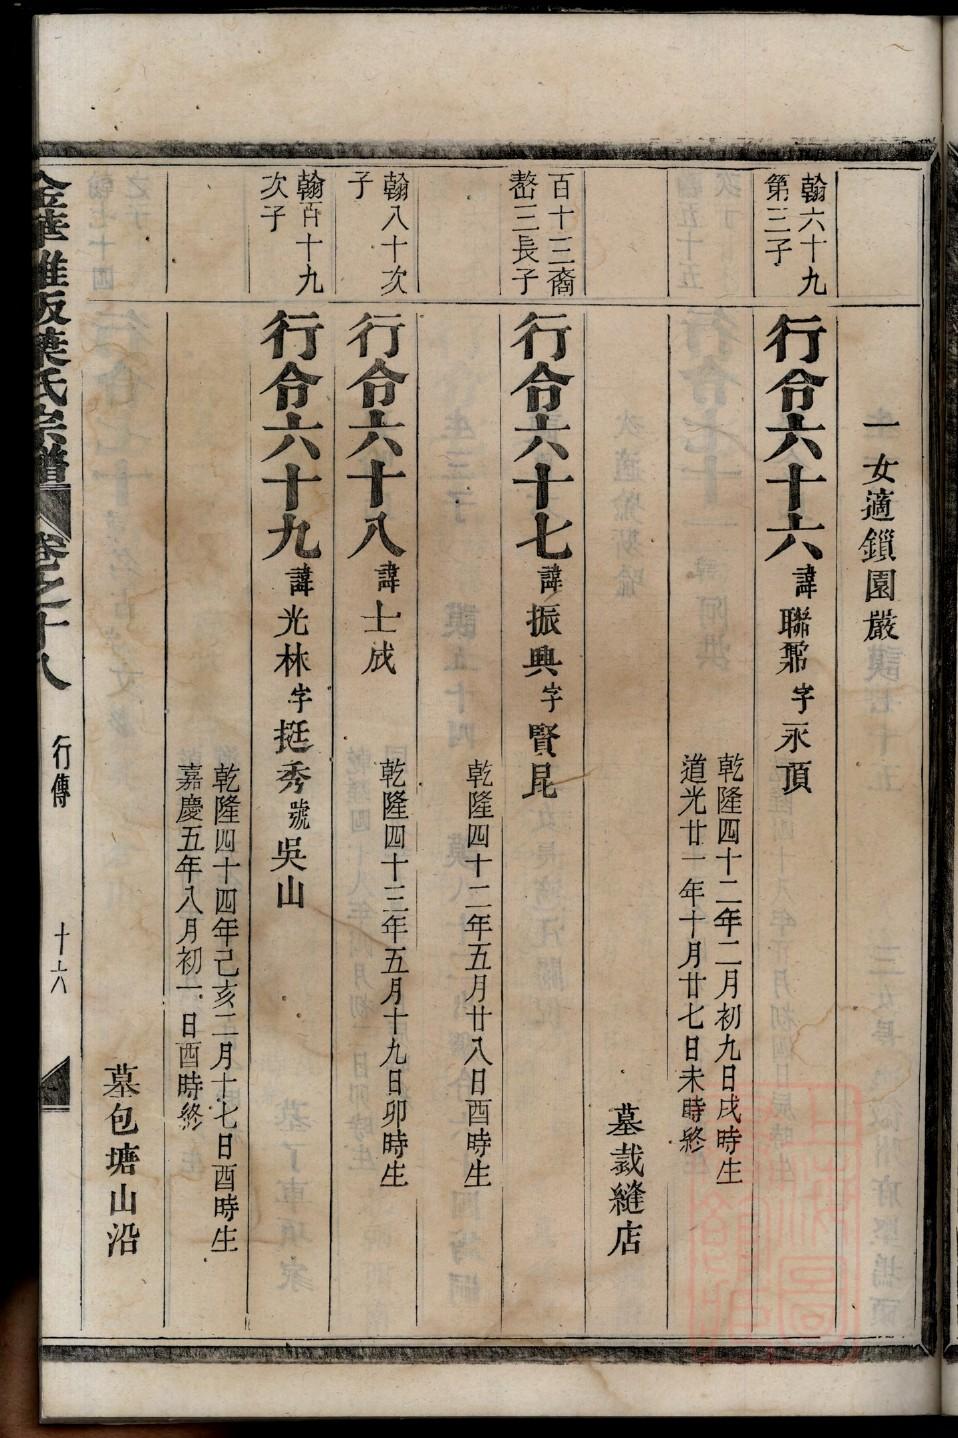 一女適鎖園嚴
翰六十九
第三子
行令六十六諱聯鼐字永頂
乾隆四十二年二月初九日戌時生
道光廿一年十月廿七日未時終
墓裁縫店
百十三裔
嶅三長子
行令六十七諱振興字賢昆
乾隆四十二年五月廿八日酉時生
翰八十次
子
行令六十八諱士成
乾隆四十三年五月十九日卯時生
翰百十九
次子
行令六十九諱光林字挺秀號吳山
乾隆四十四年己亥二月十七日酉時生
嘉慶五年八月初一日酉時終
墓包塘山沿
金華雅畈葉氏宗譜 卷之十八 行傳 十六